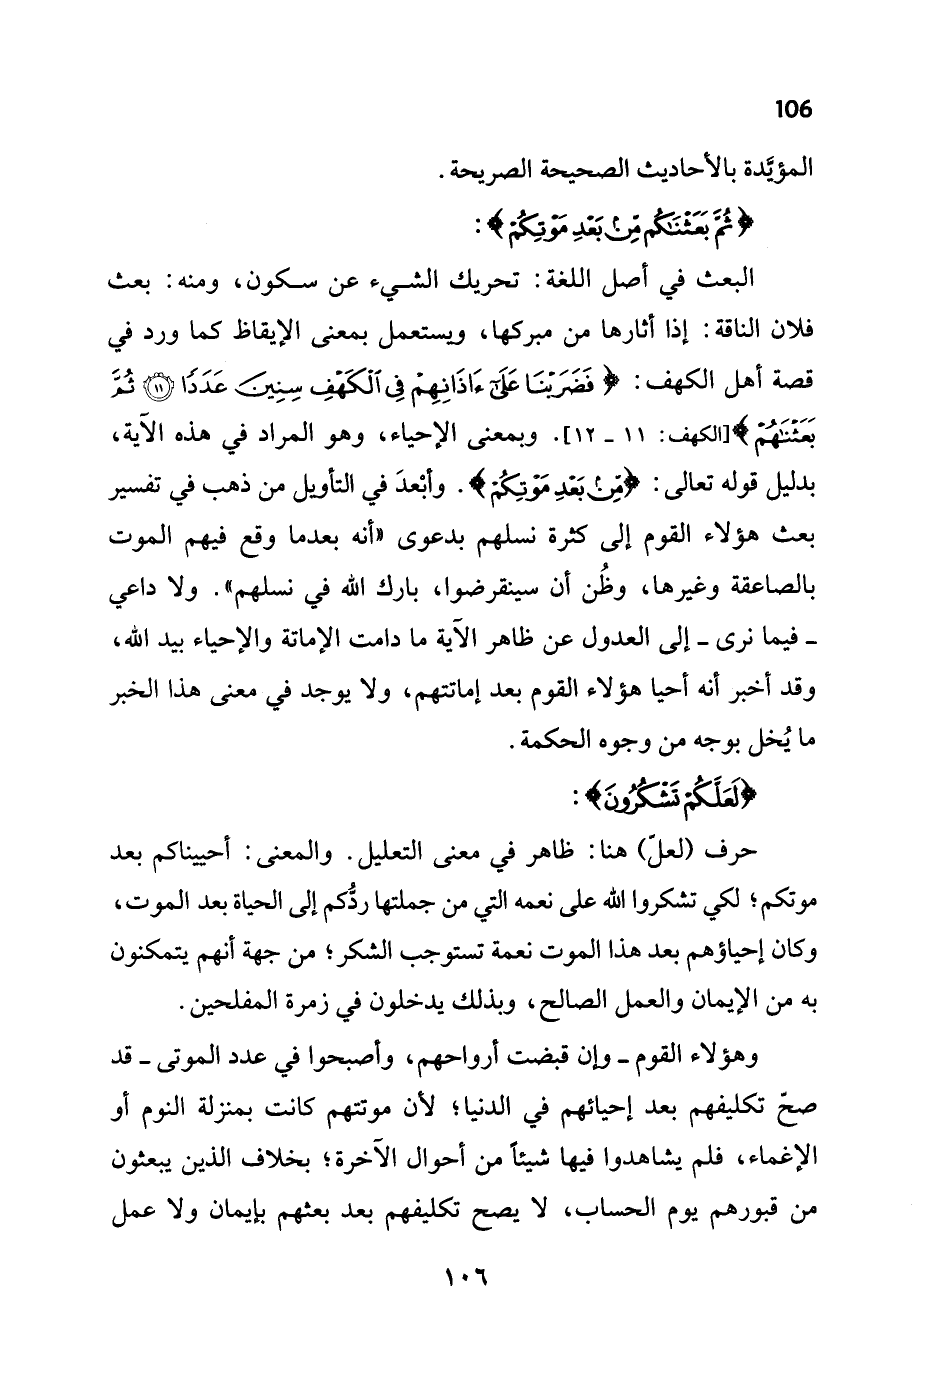 106
المؤيَّدة بالأحاديث الصحيحة الصريحة.
﴿ثُمَّ بَعَثْنَٰكُم مِّنۢ بَعْدِ مَوْتِكُمْ﴾:
البعث في أصل اللغة: تحريك الشيء عن سكون، ومنه: بعث
فلان الناقة: إذا أثارها من مبركها، ويستعمل بمعنى الإيقاظ كما ورد في
قصة أهل الكهف: ﴿فَضَرَبْنَا عَلَىٰٓ ءَاذَانِهِمْ فِى ٱلْكَهْفِ سِنِينَ عَدَدًا ۝١١ ثُمَّ
بَعَثْنَٰهُمْ﴾ [الكهف: ١١ ـ ١٢]. وبمعنى الإحياء، وهو المراد في هذه الآية،
بدليل قوله تعالى: ﴿مِّنۢ بَعْدِ مَوْتِكُمْ﴾. وأبْعدَ في التأويل من ذهب في تفسير
بعث هؤلاء القوم إلى كثرة نسلهم بدعوى «أنه بعدما وقع فيهم الموت
بالصاعقة وغيرها، وظُن أن سينقرضوا، بارك الله في نسلهم». ولا داعي
ـ فيما نرى ـ إلى العدول عن ظاهر الآية ما دامت الإماتة والإحياء بيد الله،
وقد أخبر أنه أحيا هؤلاء القوم بعد إماتتهم، ولا يوجد في معنى هذا الخبر
ما يُخل بوجه من وجوه الحكمة.
﴿لَعَلَّكُمْ تَشْكُرُونَ﴾:
حرف (لعلّ) هنا: ظاهر في معنى التعليل. والمعنى: أحييناكم بعد
موتكم؛ لكي تشكروا الله على نعمه التي من جملتها ردُّكم إلى الحياة بعد الموت،
وكان إحياؤهم بعد هذا الموت نعمة تستوجب الشكر؛ من جهة أنهم يتمكنون
به من الإيمان والعمل الصالح، وبذلك يدخلون في زمرة المفلحين.
وهؤلاء القوم ـ وإن قبضت أرواحهم، وأصبحوا في عدد الموتى ـ قد
صحّ تكليفهم بعد إحيائهم في الدنيا؛ لأن موتتهم كانت بمنزلة النوم أو
الإغماء، فلم يشاهدوا فيها شيئاً من أحوال الآخرة؛ بخلاف الذين يبعثون
من قبورهم يوم الحساب، لا يصح تكليفهم بعد بعثهم بإيمان ولا عمل
١٠٦